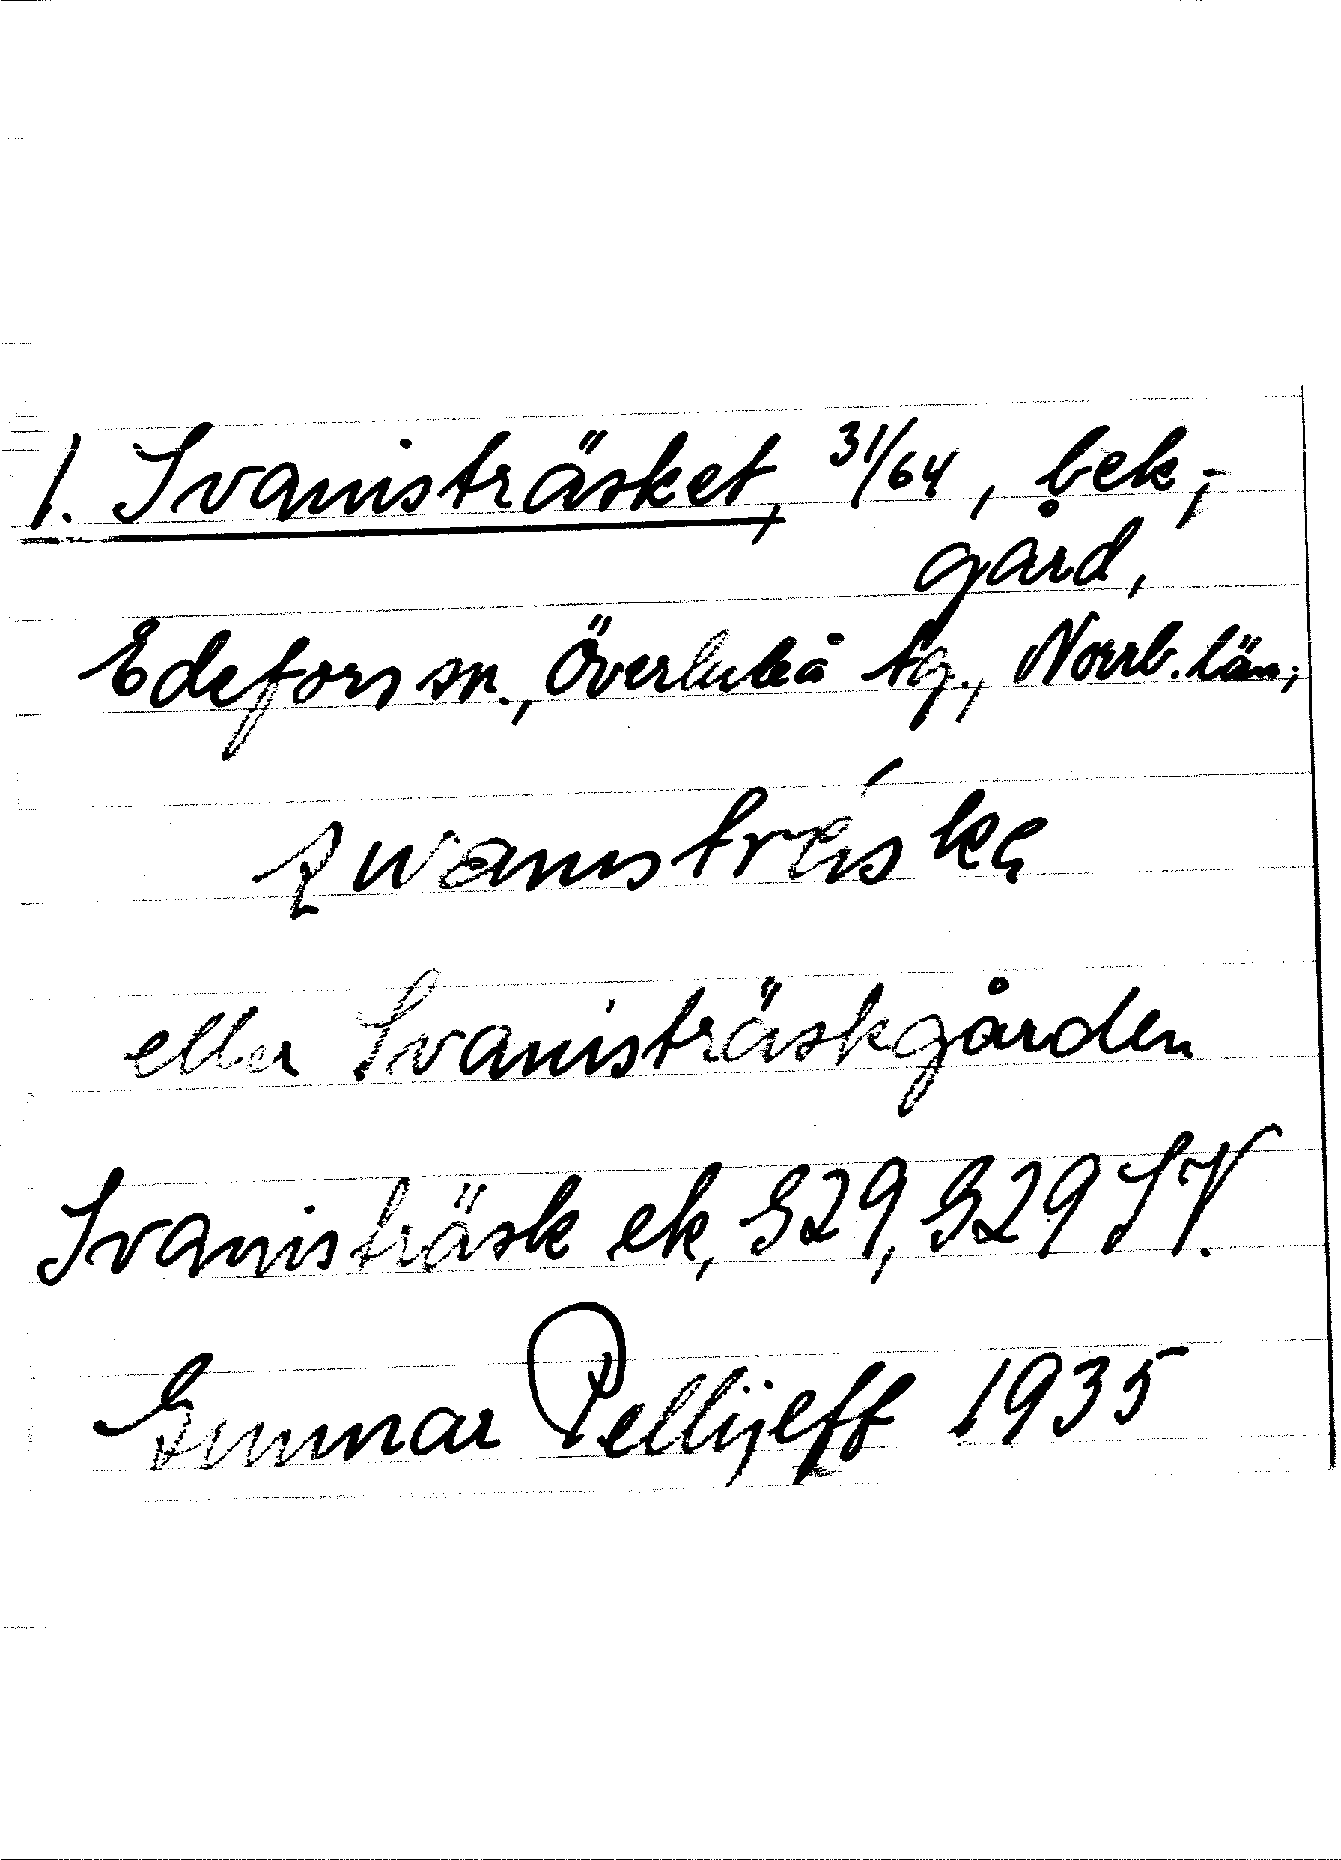 1. Svanisträsket, 31/64, bek.,
gård,
Edefors sn., Överluleå tg., Norrb. län;
eller Svanisträskgården
Svanisträsk ek, G29, G29 SV.
Gunnar Pellijeff 1935